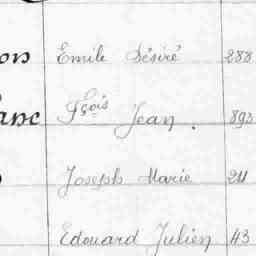 on Emile Désiré 288
anc Fçois Jean. 893
Joseph Marie 211
Edouard Julien 43